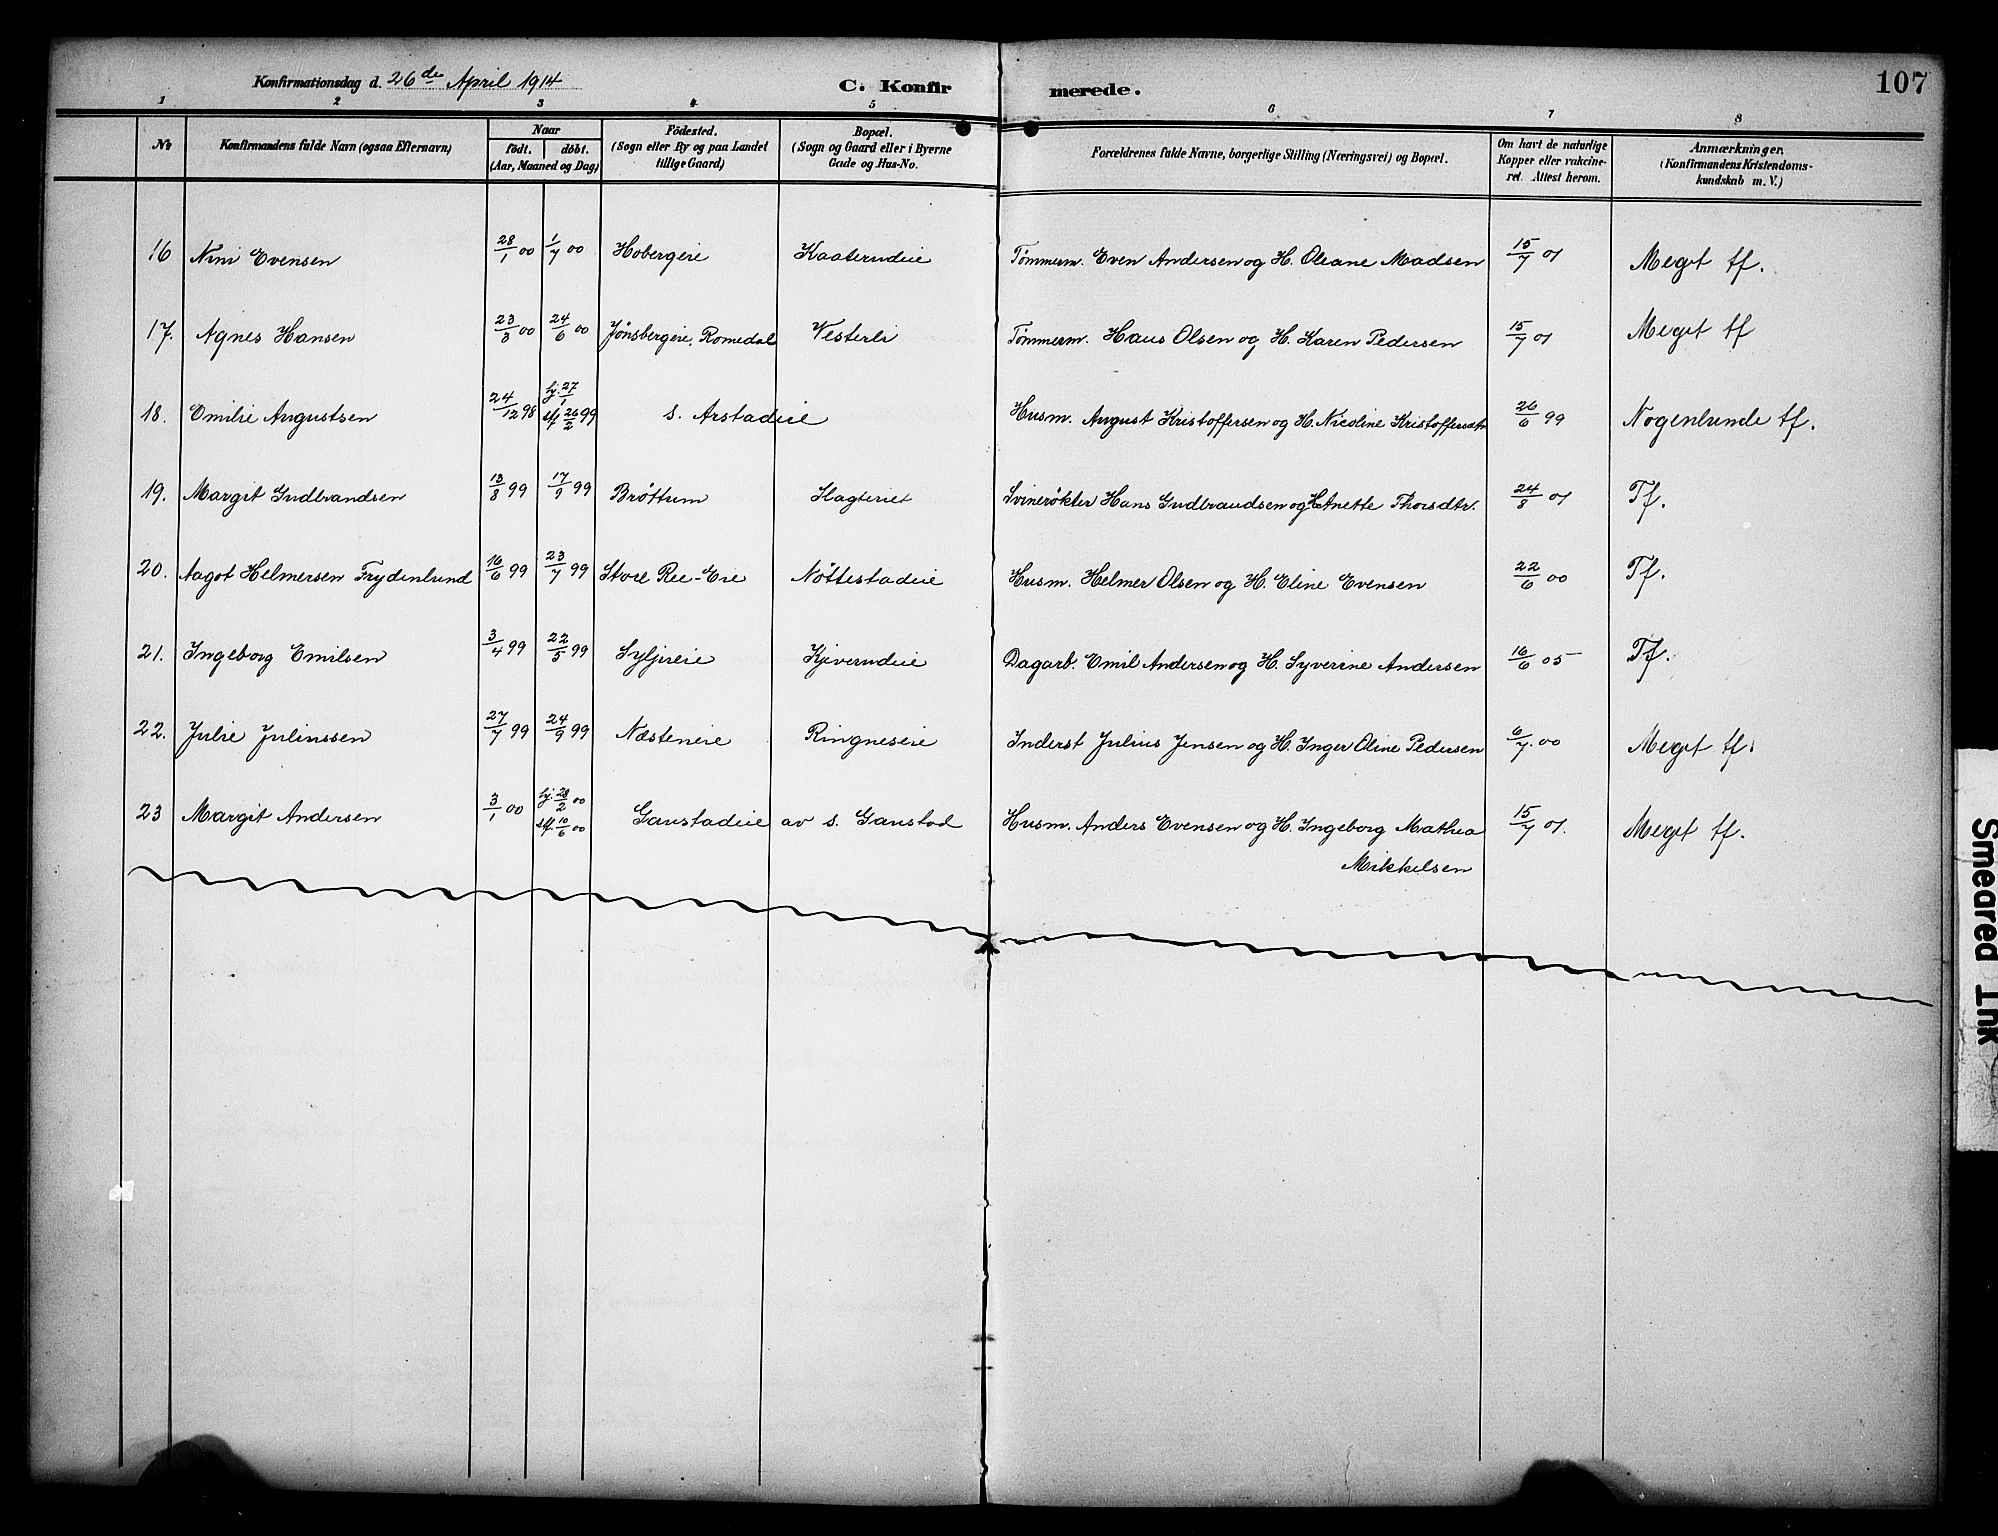 Konfirmationsdag d. 26de April 1914 C. Konfirmerede. 107
1 2 3 4 5 6 7 8
No Konfirmandens fulde Navn (ogsaa Efternavn) Naar födt. döbt. (Aar, Maaned og Dag) Födested. (Sogn eller By og paa Landet tillige Gaard) Bopæl. (Sogn og Gaard eller i Byerne Gade og Hus-No. Forældrenes fulde Navne, borgerlige Stilling (Næringsvei) og Bopæl. Om havt de naturlige Kopper eller vakcineret. Attest herom. Anmærkninger. (Konfirmandens Kristendomskundskab m. V.)
16 Nini Evensen 28/1 00 1/7 00 Hobergeie Kaaterudeie Tømmerm. Even Andersen og H. Oleane Madsen 15/7 01 Meget tf.
17. Agnes Hansen 23/3 00 24/6 00 Jønsbergeie, Romedal Vesterli Tømmerm. Hans Olsen og H. Karen Pedersen 15/7 01 Meget tf
18. Emilie Augustsen 24/12 98 hj. 27/1 stf 26/2 99 s. Arstadeie Husm. August Kristoffersen og H. Nicoline Kristoffersdtr 26/6 99 Nogenlunde tf.
19. Margit Gudbrandsen 13/8 99 17/9 99 Brøttum Slagteriet Svinerøkter Hans Gudbrandsen og H. Anette Thorsdtr. 24/8 01 Tf.
20. Aagot Helmersen Frydenlund 16/6 99 23/7 99 Store Ree-Eie Nøttestadeie Husm. Helmer Olsen og H. Eline Evensen 22/6 00 Tf.
21. Ingeborg Emilsen 3/4 99 22/5 99 Syljueie Kjverudeie Dagarb. Emil Andersen og H. Syverine Andersen 16/6 05 Tf.
22. Julie Juliussen 27/7 99 24/9 99 Næsteneie Ringneseie Inderst Julius Jensen og H. Inger Oline Pedersen 6/7. 00 Meget tf.
23 Margit Andersen 3/1 00 hj. 28/2 00 stf. 10/6 00 Gaustadeie av s. Gaustad Husm. Anders Evensen og H. Ingeborg Mathea 15/7 01. Meget tf.
Mikkelsen
Smeared Ink